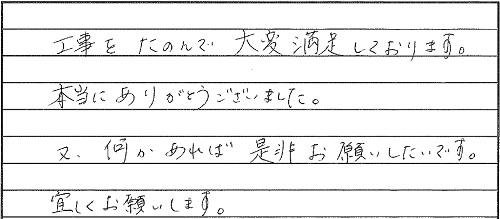 工事をたのんで 大変満足しております。
本当にありがとうございました。
又、何かあれば 是非お願いしたいです。
宜しくお願いします。